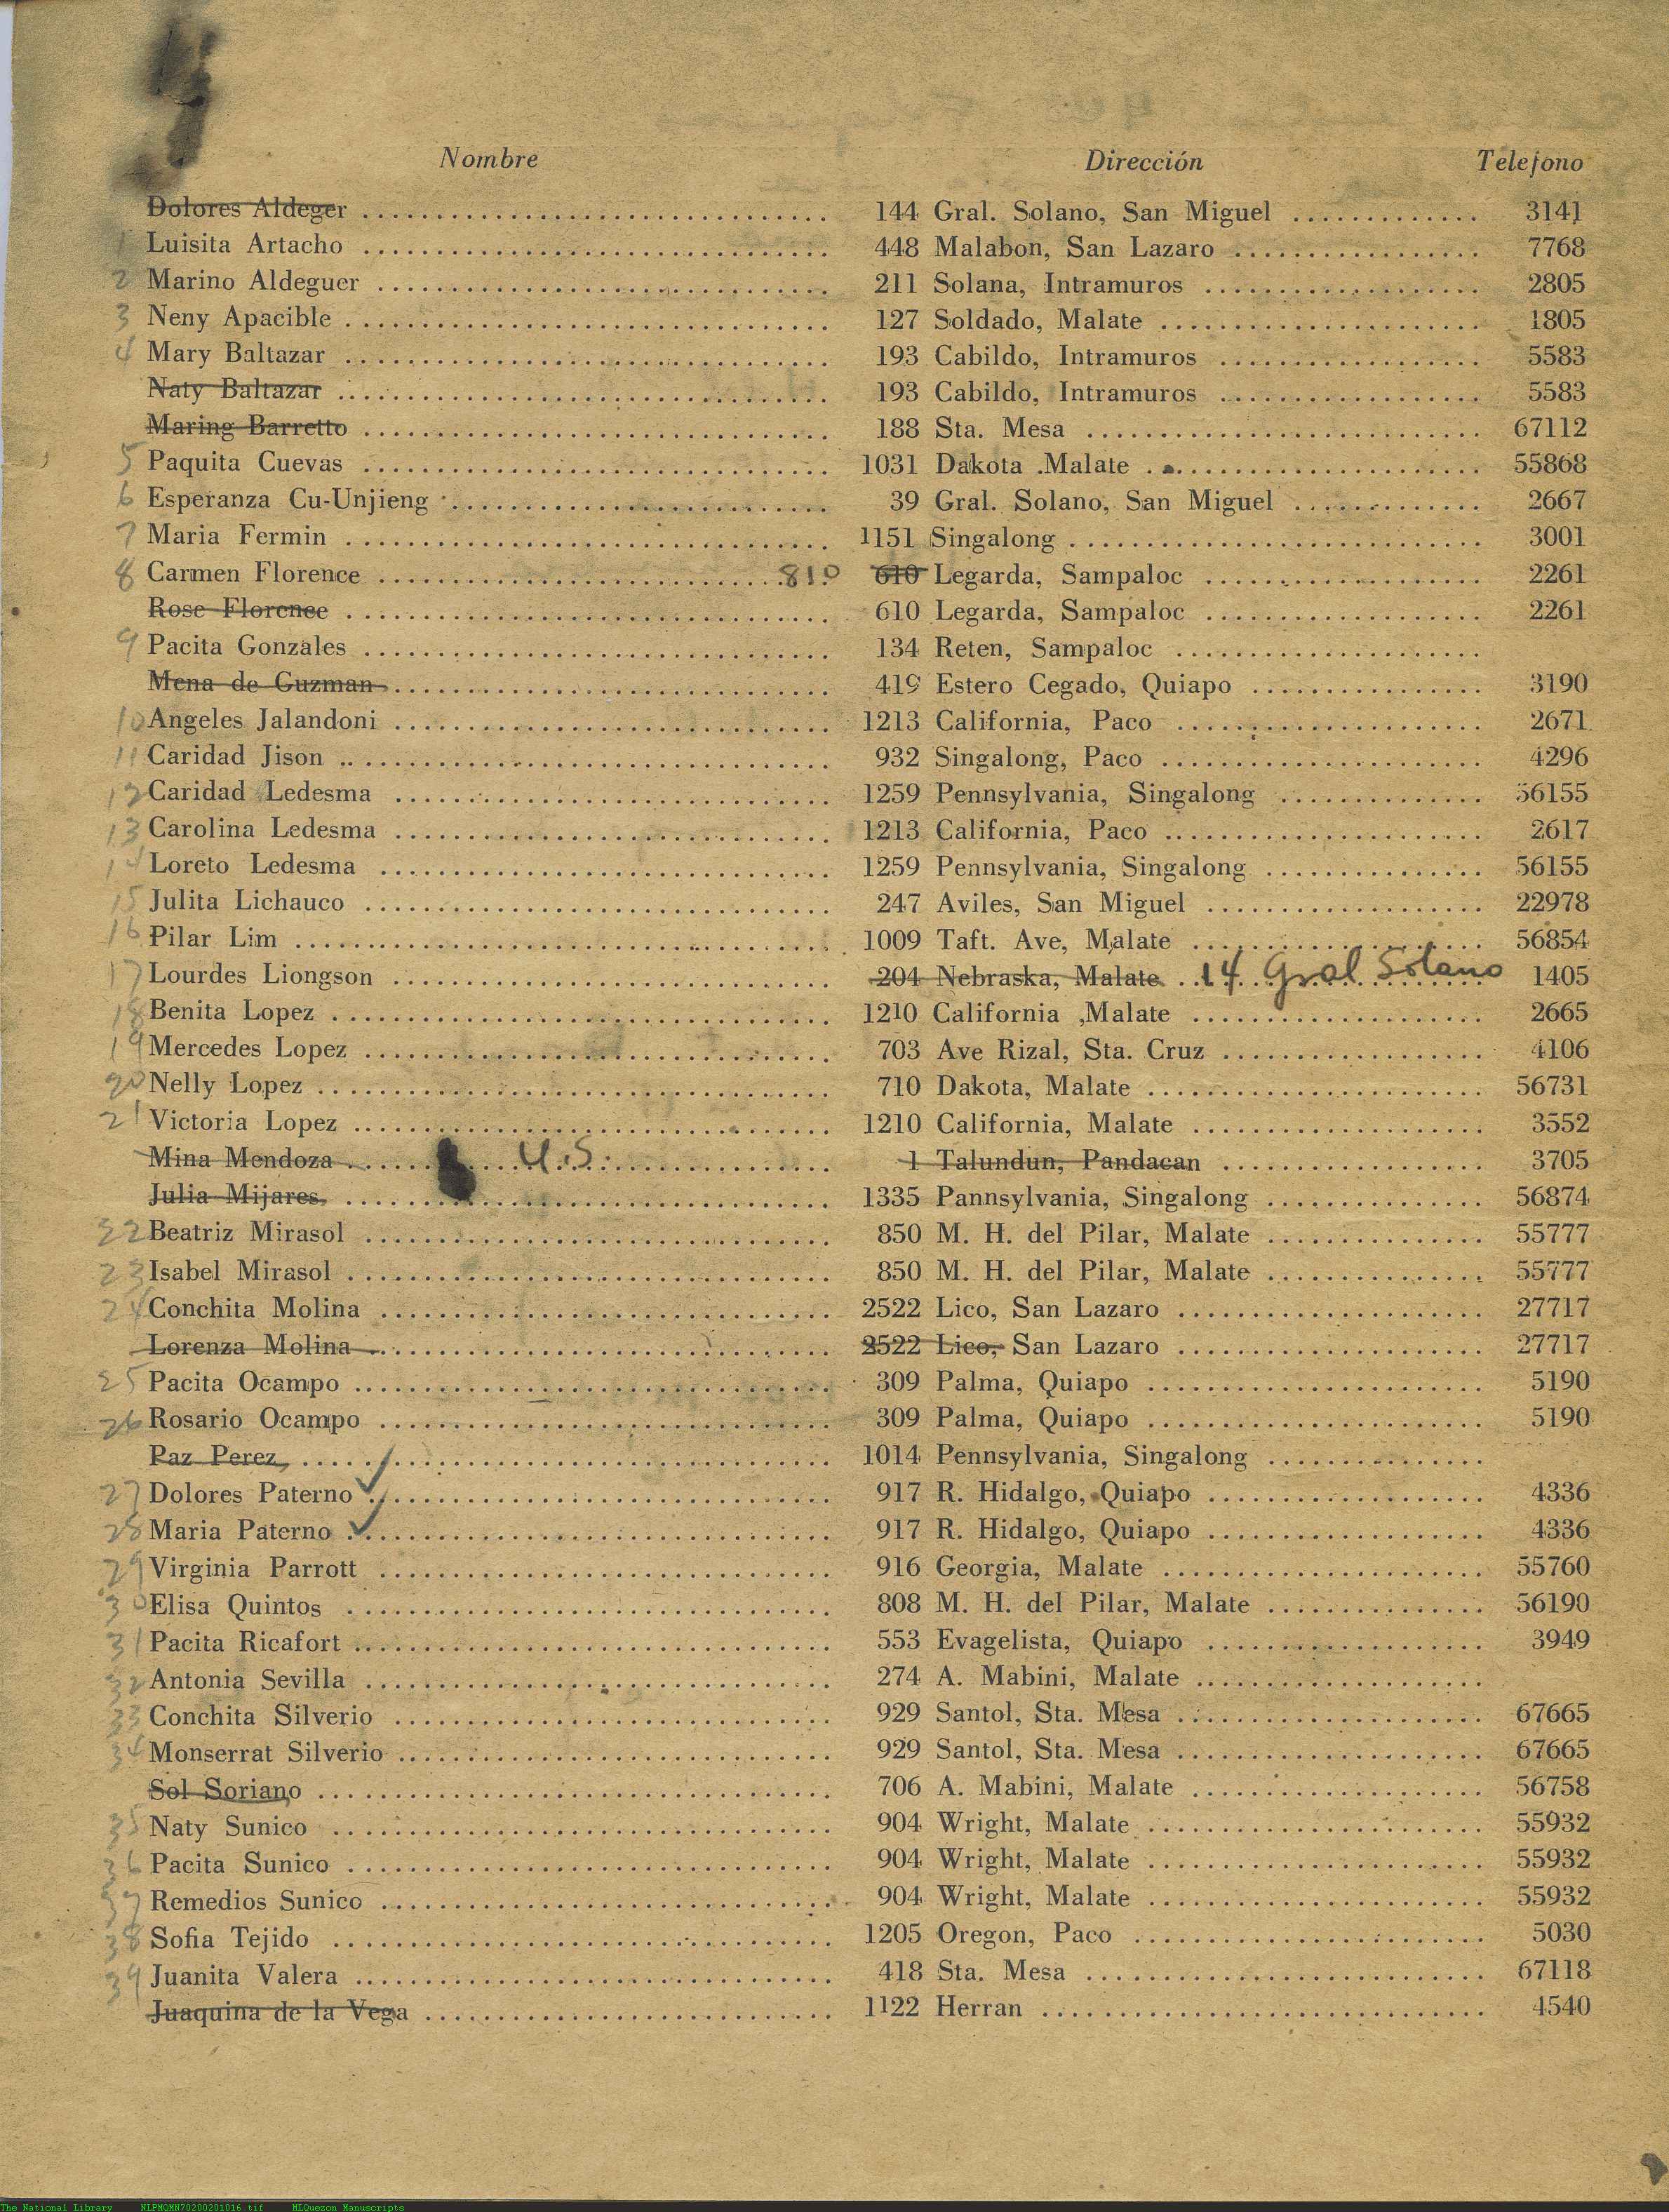 Nombre Dirección Telefono
Dolores Aldeger 144 Gral. Solano, San Miguel 3141
1 Luisita Artacho 448 Malabon, San Lazaro 7768
2 Marino Aldeguer 211 Solana, Intramuros 2805
3 Neny Apacible 127 Soldado, Malate 1805
4 Mary Baltazar 193 Cabildo, Intramuros 5583
Naty Baltazar 193 Cabildo, Intramuros 5583
Maring Barretto 188 Sta. Mesa 67112
5 Paquita Cuevas 1031 Dakota .Malate 55868
6 Esperanza Cu-Unjieng 39 Gral. Solano, San Miguel 2667
7 Maria Fermin 1151 Singalong 3001
8 Carmen Florence 810 610 Legarda, Sampaloc 2261
Rose Florence 610 Legarda, Sampaloc 2261
9 Pacita Gonzales 134 Reten, Sampaloc
Mena de Guzman 419 Estero Cegado, Quiapo 3190
10 Angeles Jalandoni 1213 California, Paco 2671
11 Caridad Jison 932 Singalong, Paco 4296
12 Caridad Ledesma 1259 Pennsylvania, Singalong 56155
13 Carolina Ledesma 1213 California, Paco 2617
14 Loreto Ledesma 1259 Pennsylvania, Singalong 56155
15 Julita Lichauco 247 Aviles, San Miguel 22978
16 Pilar Lim 1009 Taft. Ave, Malate 56854
17 Lourdes Liongson 204 Nebraska, Malate 14 Gral Solano 1405
18 Benita Lopez 1210 California ,Malate 2665
19 Mercedes Lopez 703 Ave Rizal, Sta. Cruz 4106
20 Nelly Lopez 710 Dakota, Malate 56731
21 Victoria Lopez 1210 California, Malate 3552
Mina Mendoza U.S. 1 Talundun, Pandacan 3705
Julia Mijares 1335 Pannsylvania, Singalong 56874
22 Beatriz Mirasol 850 M. H. del Pilar, Malate 55777
23 Isabel Mirasol 850 M. H. del Pilar, Malate 55777
24 Conchita Molina 2522 Lico, San Lazaro 27717
Lorenza Molina 2522 Lico, San Lazaro 27717
25 Pacita Ocampo 309 Palma, Quiapo 5190
26 Rosario Ocampo 309 Palma, Quiapo 5190
Paz Perez 1014 Pennsylvania, Singalong
27 Dolores Paterno ✓ 917 R. Hidalgo, Quiapo 4336
28 Maria Paterno ✓ 917 R. Hidalgo, Quiapo 4336
29 Virginia Parrott 916 Georgia, Malate 55760
30 Elisa Quintos 808 M. H. del Pilar, Malate 56190
31 Pacita Ricafort 553 Evagelista, Quiapo 3949
32 Antonia Sevilla 274 A. Mabini, Malate
33 Conchita Silverio 929 Santol, Sta. Mesa 67665
34 Monserrat Silverio 929 Santol, Sta. Mesa 67665
Sol Soriano 706 A. Mabini, Malate 56758
35 Naty Sunico 904 Wright, Malate 55932
36 Pacita Sunico 904 Wright, Malate 55932
37 Remedios Sunico 904 Wright, Malate 55932
38 Sofia Tejido 1205 Oregon, Paco 5030
39 Juanita Valera 418 Sta. Mesa 67118
Juaquina de la Vega 1122 Herran 4540
The National Library NLPMQMN70200201016.tif MLQuezon Manuscripts